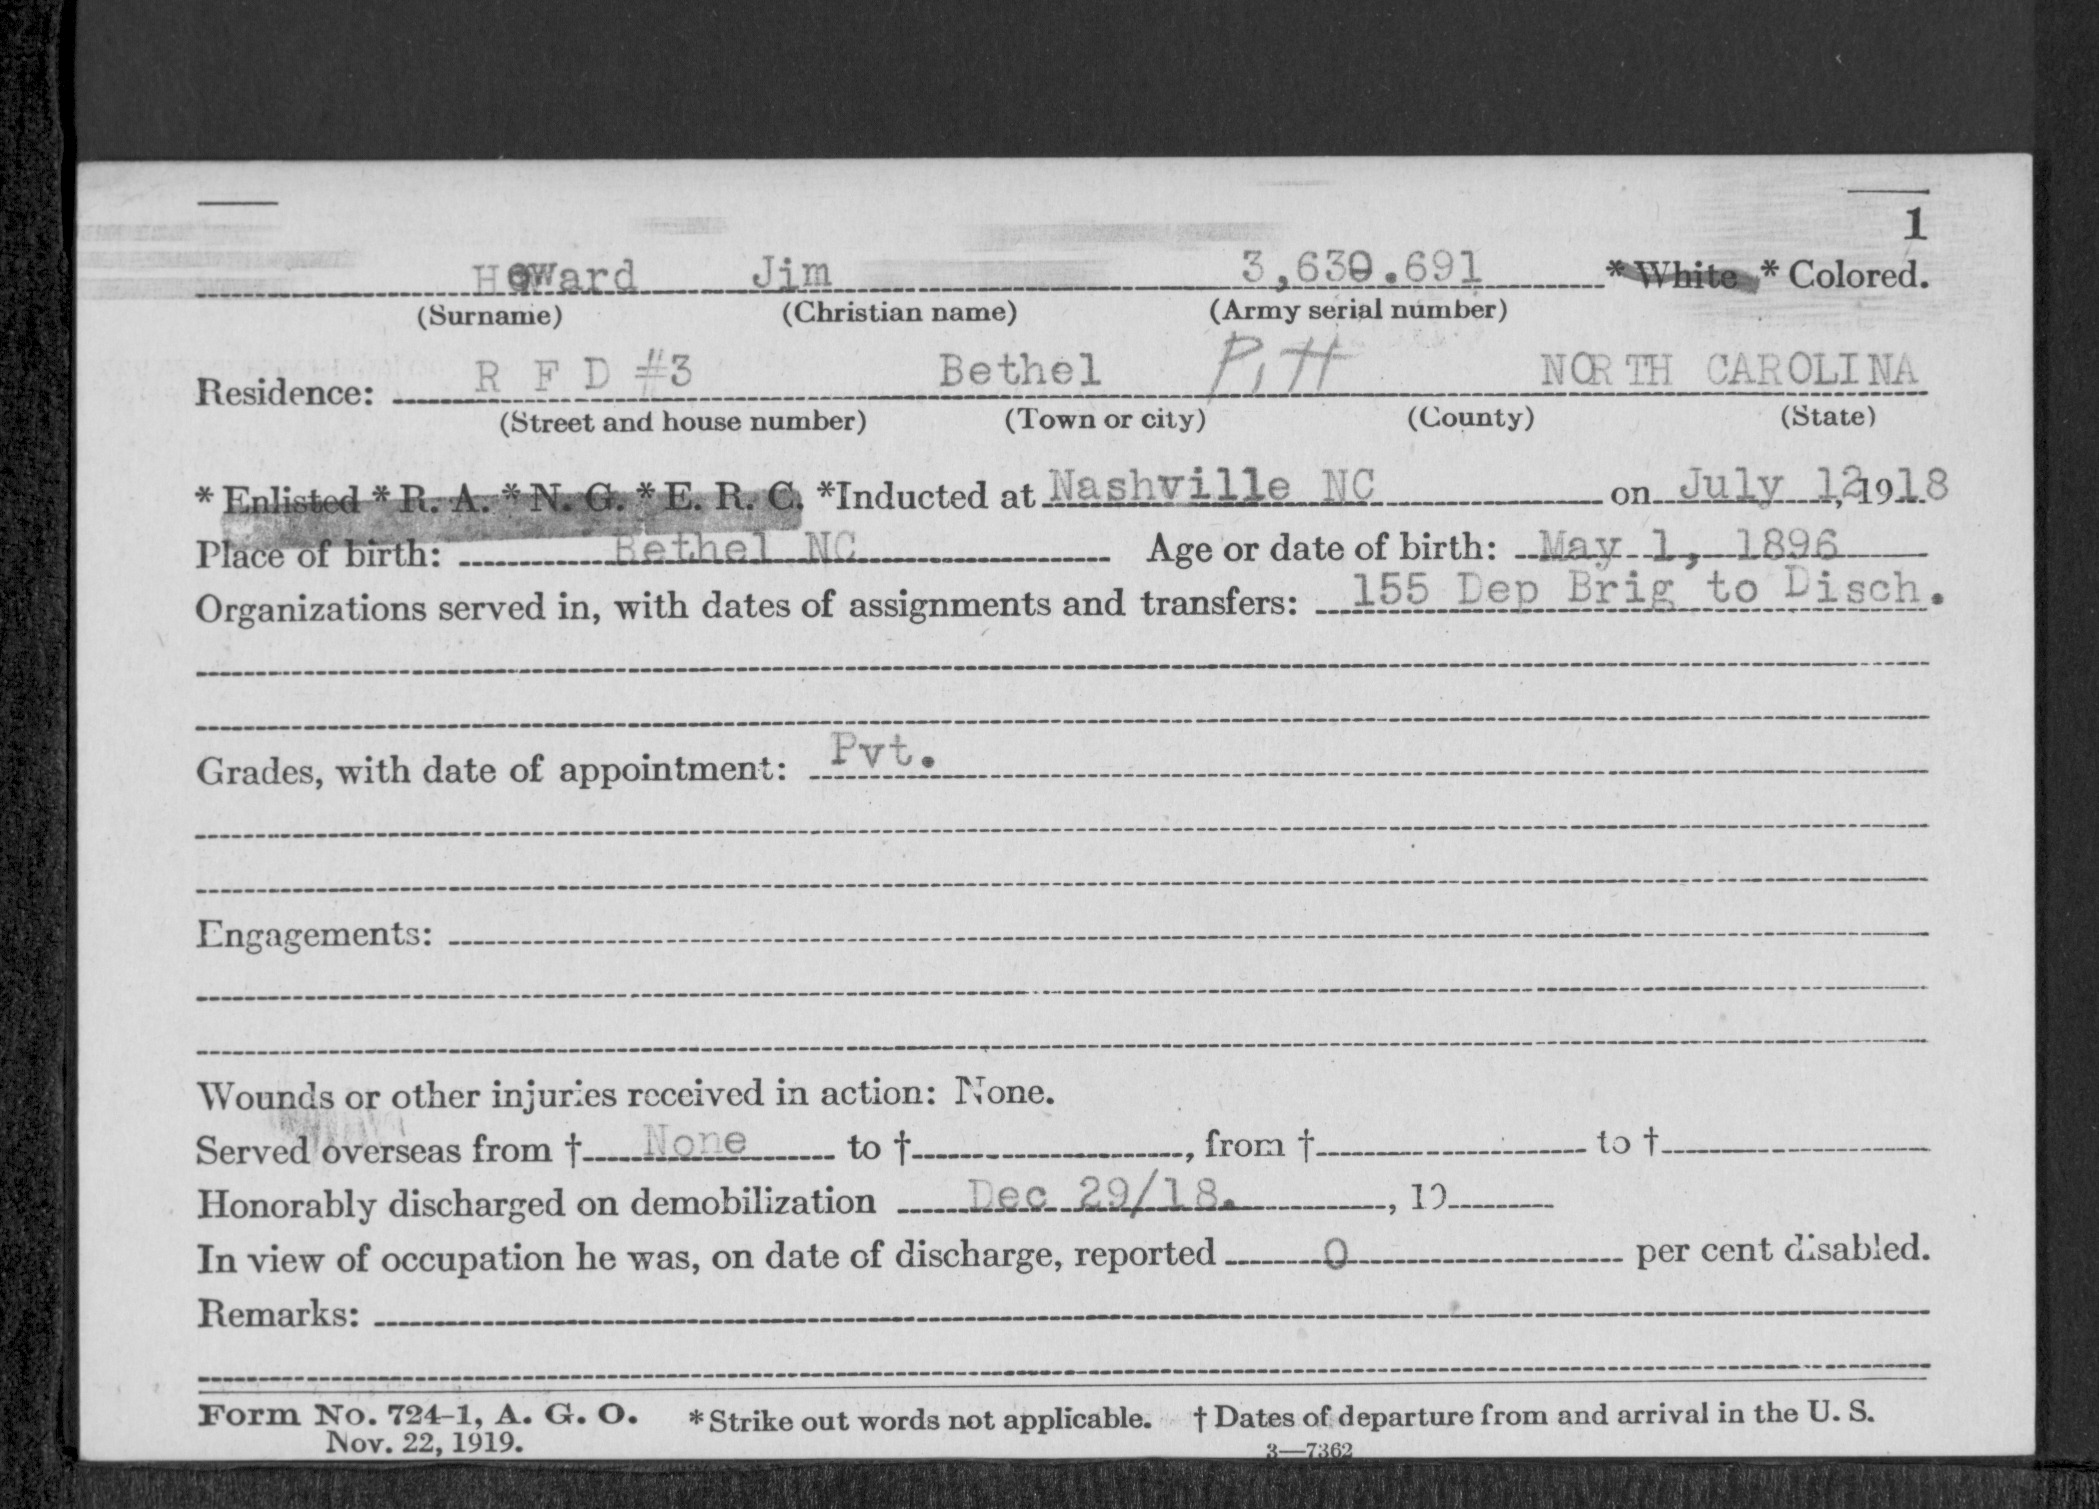 1
Howard Jim 3,630.691 * White * Colored.
(Surname) (Christian name) (Army serial number)
Residence: R F D #3 Bethel Pitt NORTH CAROLINA
(Street and house number) (Town or city) (County) (State)
* Enlisted * R. A. * N. G. * E. R. C. *Inducted at Nashville NC on July 12, 1918
Place of birth: Bethel NC Age or date of birth: May 1, 1896
Organizations served in, with dates of assignments and transfers: 155 Dep Brig to Disch.
Grades, with date of appointment: Pvt.
Engagements:
Wounds or other injuries received in action: None.
Served overseas from † None to †, from † to †
Honorably discharged on demobilization Dec 29/18., 19
In view of occupation he was, on date of discharge, reported 0 per cent disabled.
Remarks:
Form No. 724-1, A. G. O. * Strike out words not applicable. † Dates of departure from and arrival in the U. S.
Nov. 22, 1919. 3—7362